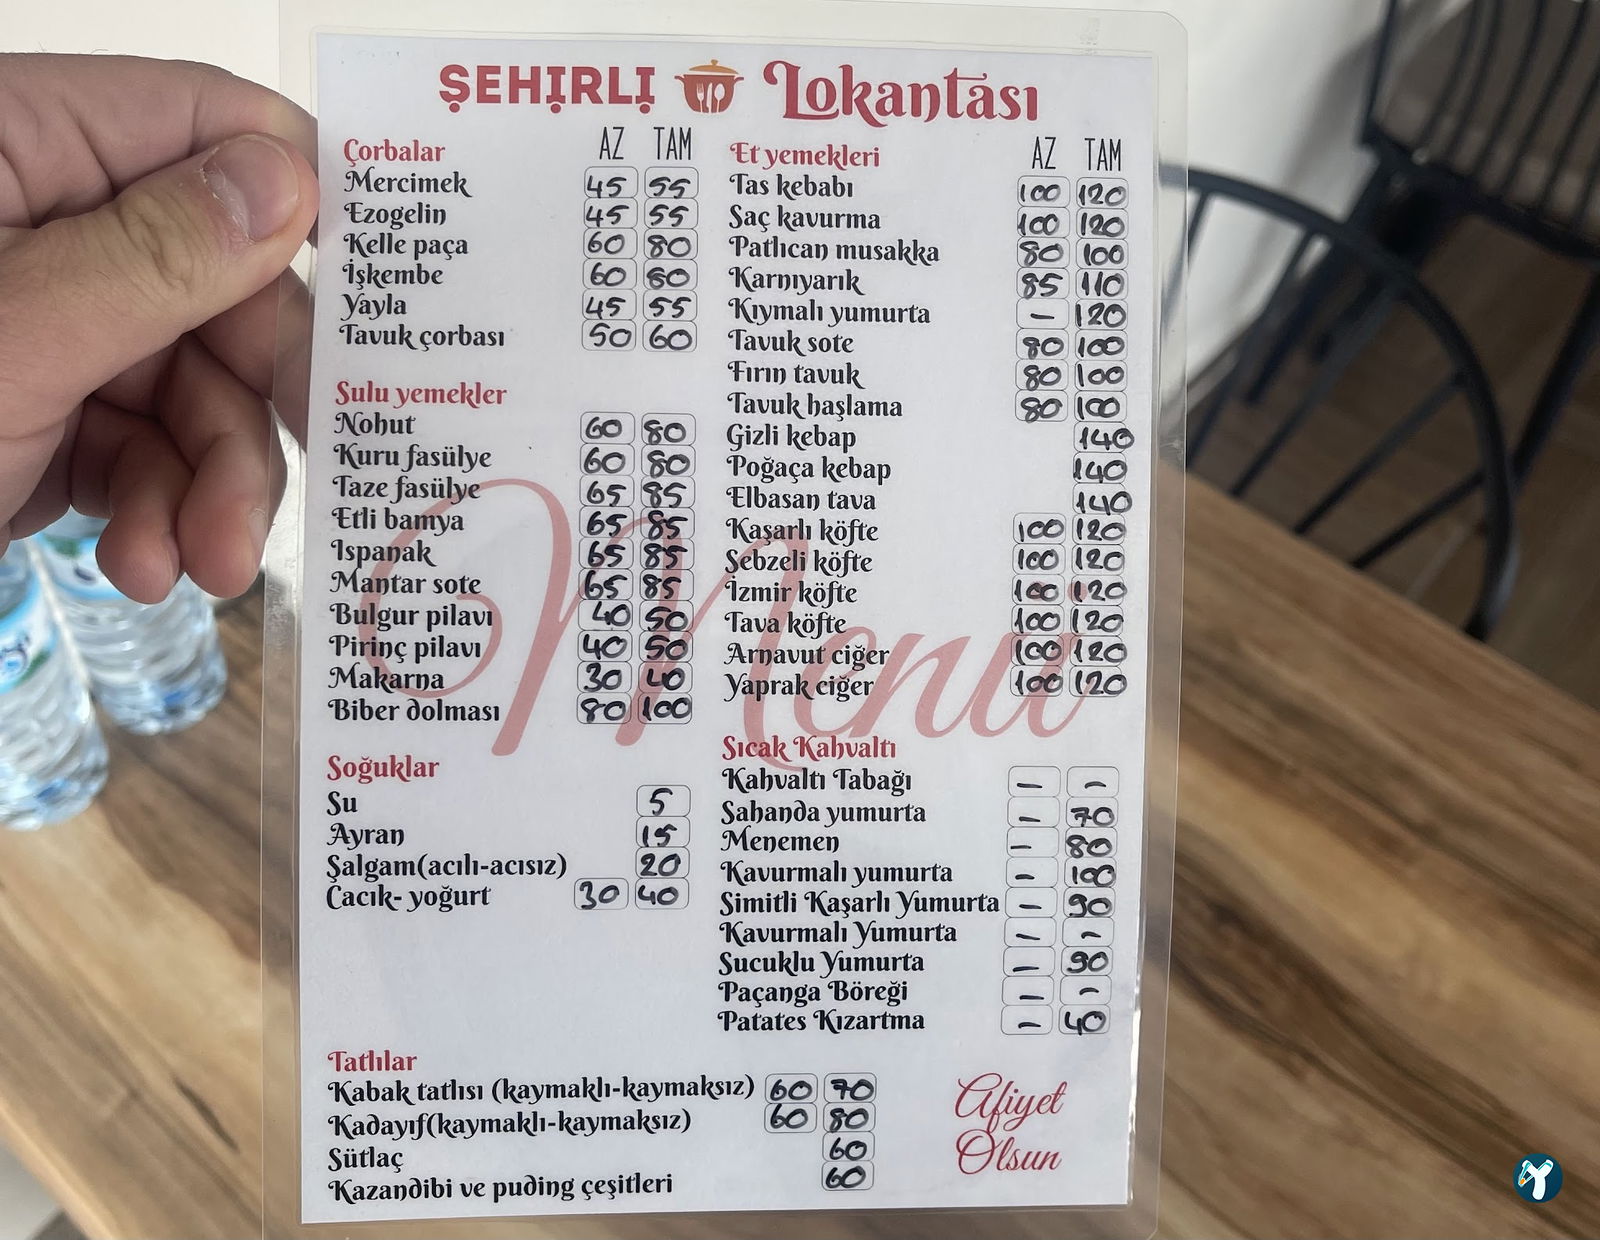 ŞEHİRLİ Lokantası
Çorbalar AZ TAM
Mercimek 45 55
Ezogelin 45 55
Kelle paça 60 80
İşkembe 60 80
Yayla 45 55
Tavuk çorbası 50 60
Sulu yemekler
Nohut 60 80
Kuru fasülye 60 80
Taze fasülye 65 85
Etli bamya 65 85
Ispanak 65 85
Mantar sote 65 85
Bulgur pilavı 40 50
Pirinç pilavı 40 50
Makarna 30 40
Biber dolması 80 100
Soğuklar
Su 5
Ayran 15
Şalgam(acılı-acısız) 20
Cacık- yoğurt 30 40
Et yemekleri AZ TAM
Tas kebabı 100 120
Saç kavurma 100 120
Patlıcan musakka 80 100
Karnıyarık 85 110
Kıymalı yumurta - 120
Tavuk sote 80 100
Fırın tavuk 80 100
Tavuk haşlama 80 100
Gizli kebap 140
Poğaça kebap 140
Elbasan tava 140
Kaşarlı köfte 100 120
Sebzeli köfte 100 120
İzmir köfte 100 120
Tava köfte 100 120
Arnavut ciğer 100 120
Yaprak ciğer 100 120
Menü
Sıcak Kahvaltı
Kahvaltı Tabağı - -
Sahanda yumurta - 70
Menemen - 80
Kavurmalı yumurta - 100
Simitli Kaşarlı Yumurta - 90
Kavurmalı Yumurta - -
Sucuklu Yumurta - 90
Paçanga Böreği - -
Patates Kızartma - 40
Tatlılar
Kabak tatlısı (kaymaklı-kaymaksız) 60 70
Kadayıf(kaymaklı-kaymaksız) 60 80
Sütlaç 60
Kazandibi ve puding çeşitleri 60
Afiyet
Olsun